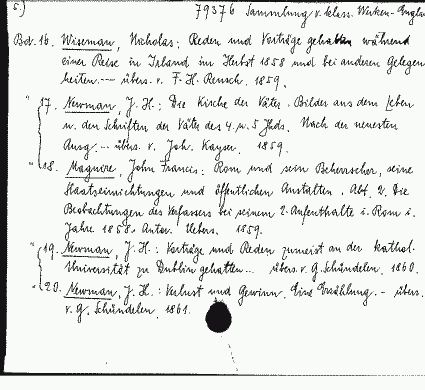 5.) 79376 Sammlung v. klass. Werken-Englan
Bd. 16. Wiseman, Nicholas: Reden und Vorträge gehalten während
einer Reise in Irland im Herbst 1858 und bei anderen Gelegen
heiten. — übers. v. F. H. Reusch. 1859.
" 17. Newman, J. H.: Die Kirche der Väter. Bilder aus dem Leben
u. den Schriften der Väter des 4. u. 5 Jhds. Nach der neuesten
Ausg. — übers. v. Joh. Kayser. 1859.
" 18. Maguire, John Francis: Rom und sein Beherrscher, seine
Staatseinrichtungen und öffentlichen Anstalten. Abt. 2. Die
Beobachtungen des Verfassers bei seinem 2. Aufenthalte i. Rom i.
Jahre 1858. Autor. Uebers. 1859.
" 19. Newman, J. H.: Vorträge und Reden zumeist an der kathol.
Universität zu Dublin gehalten... übers. v. G. Schündelen. 1860.
" 20. Newman, J. H.: Verlust und Gewinn. Eine Erzählung. - übers.
v. G. Schündelen. 1861.